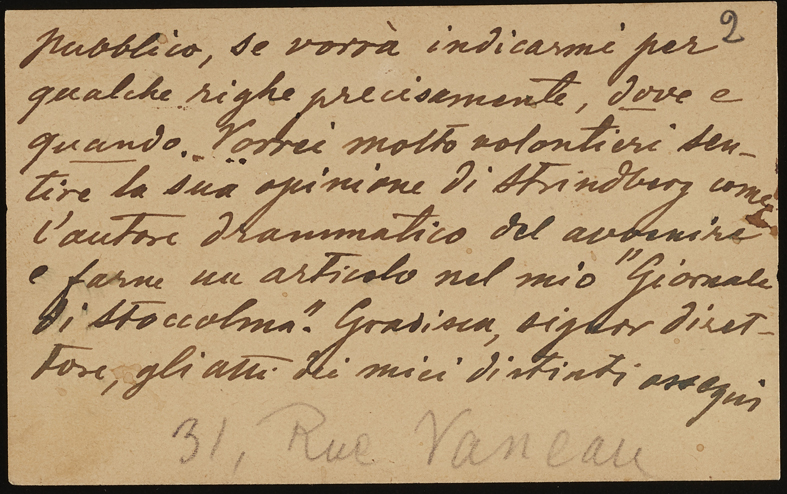 2
pubblico, se vorrà indicarmi per
qualche righe precisamente, dove e
quando. Vorrei molto volontieri sen-
tire la sua opinione di Strindberg come
l'autore drammatico del avvenire
e farne un articolo nel mio "Giornale
di Stoccolma". Gradisca, signor diret-
tore, gli atti dei miei distinti ossequi
31, Rue Vaneau